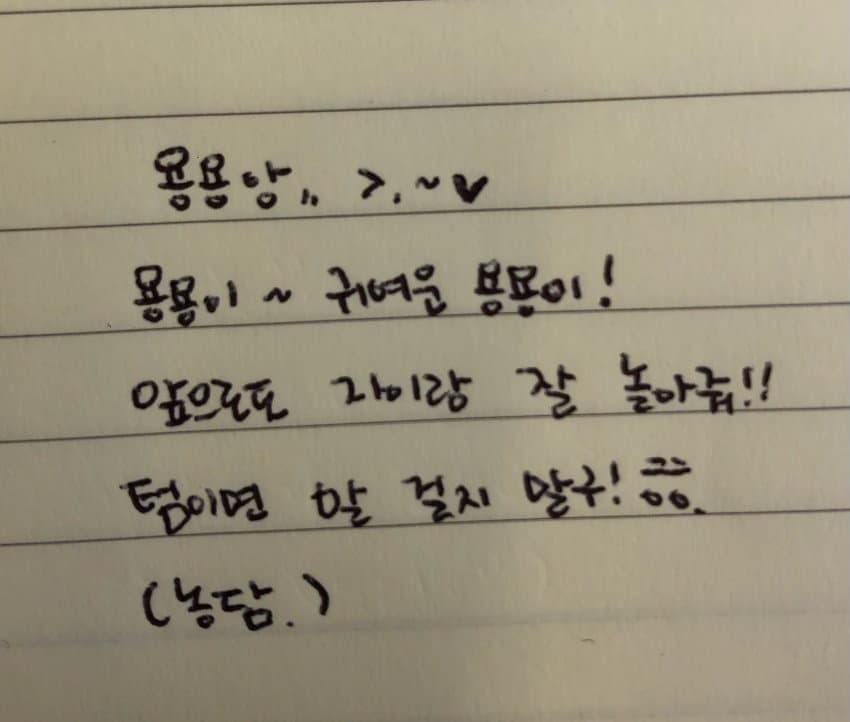 용용앙,, >.~♥
용용이 ~ 귀여운 용용이!
앞으로도 자이랑 잘 놀아줘!!
텀이면 말 걸지 말구! ㅋㅋㅇㅇ.
(농담.)